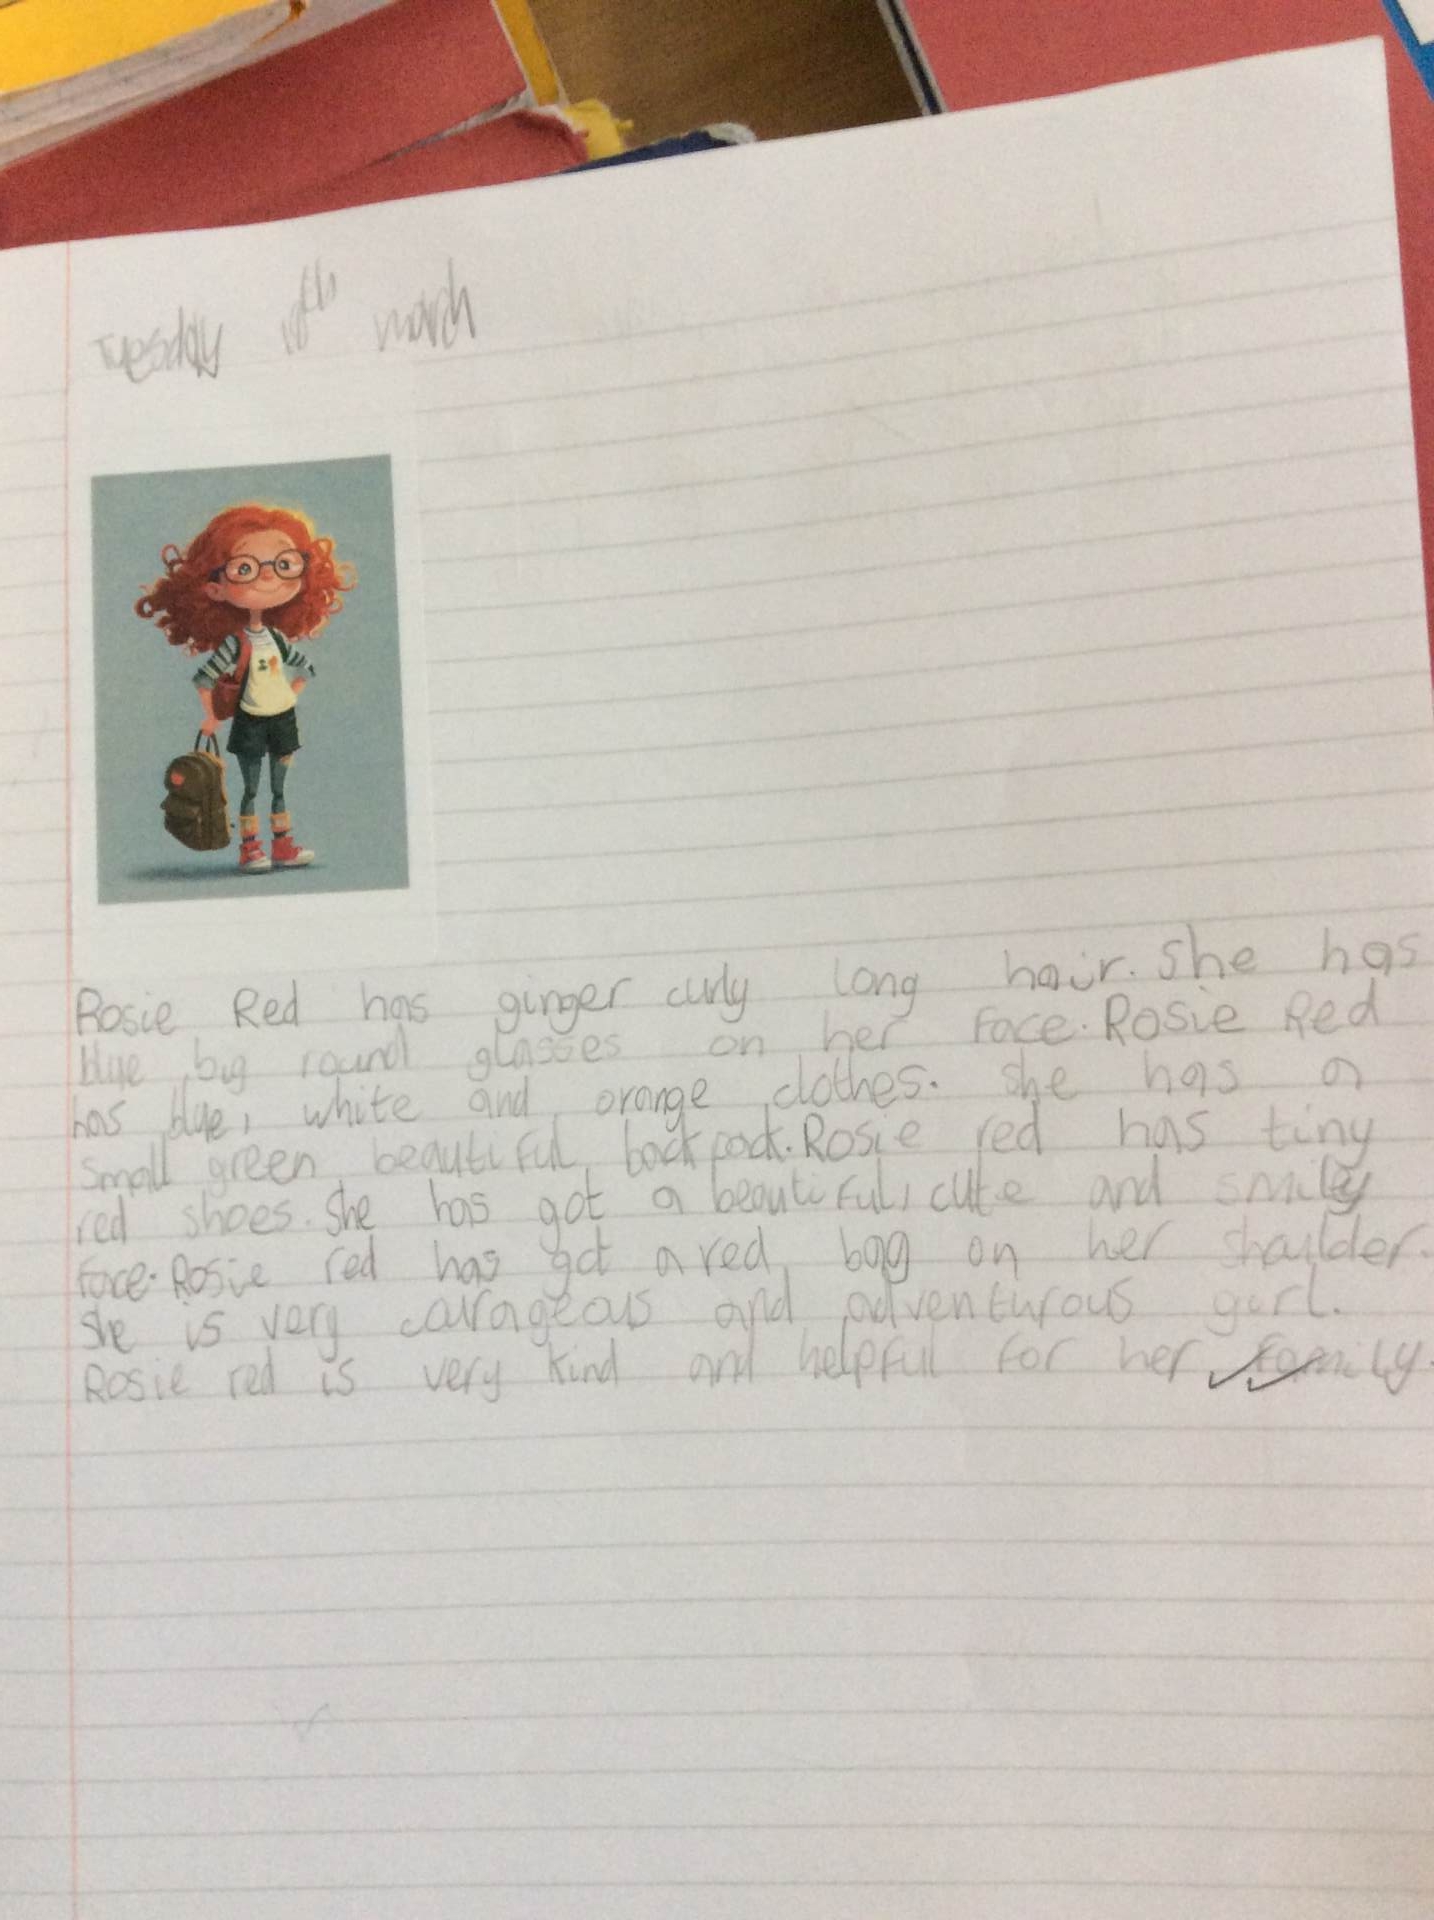 Tuesday 18th march
Rosie Red has ginger curly long hair. She has
blue big round glasses on her face. Rosie Red
has blue, white and orange clothes. She has a
small green beautiful back pack. Rosie red has tiny
red shoes. She has got a beautiful, cute and smiley
face. Rosie red has got a red bag on her shoulder.
She is very courageous and adventurous girl.
Rosie red is very kind and helpful for her family.